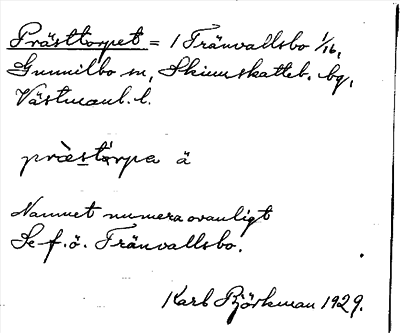 Prästtorpet = 1 Tränvallsbo 1/16,
Gunnilbo sn, Skinnskatteb. bg,
Västmanl. l.
pràs̲tòrpa ä
Namnet numera ovanligt
Se f.ö. Tränvallsbo.
Karl Björkman 1929.